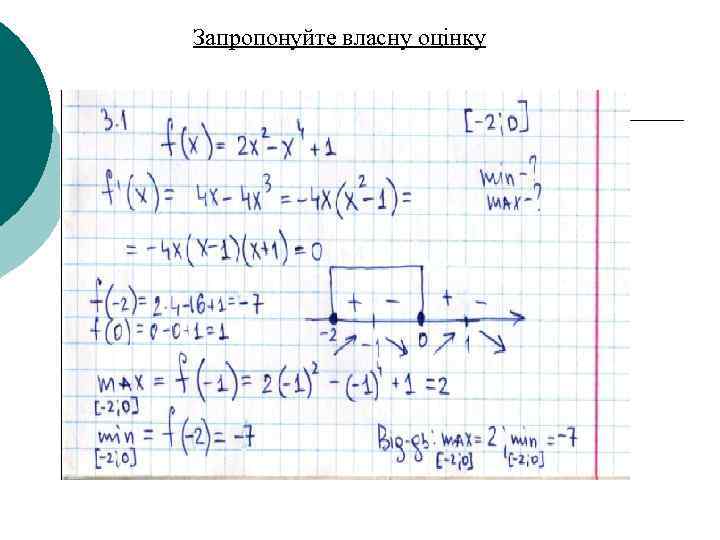 Запропонуйте власну оцінку
3.1 f(x) = 2x² - x⁴ + 1 [-2;0]
f'(x) = 4x - 4x³ = -4x(x² - 1) = min-?
max-?
= -4x(x-1)(x+1) = 0
f(-2) = 2·4-16+1 = -7
f(0) = 0-0+1 = 1
+ - + -
-2 -1 0 1
max = f(-1) = 2(-1)² - (-1)⁴ + 1 = 2
[-2;0]
min = f(-2) = -7 Від-дь: max = 2; min = -7
[-2;0] [-2;0] [-2;0]